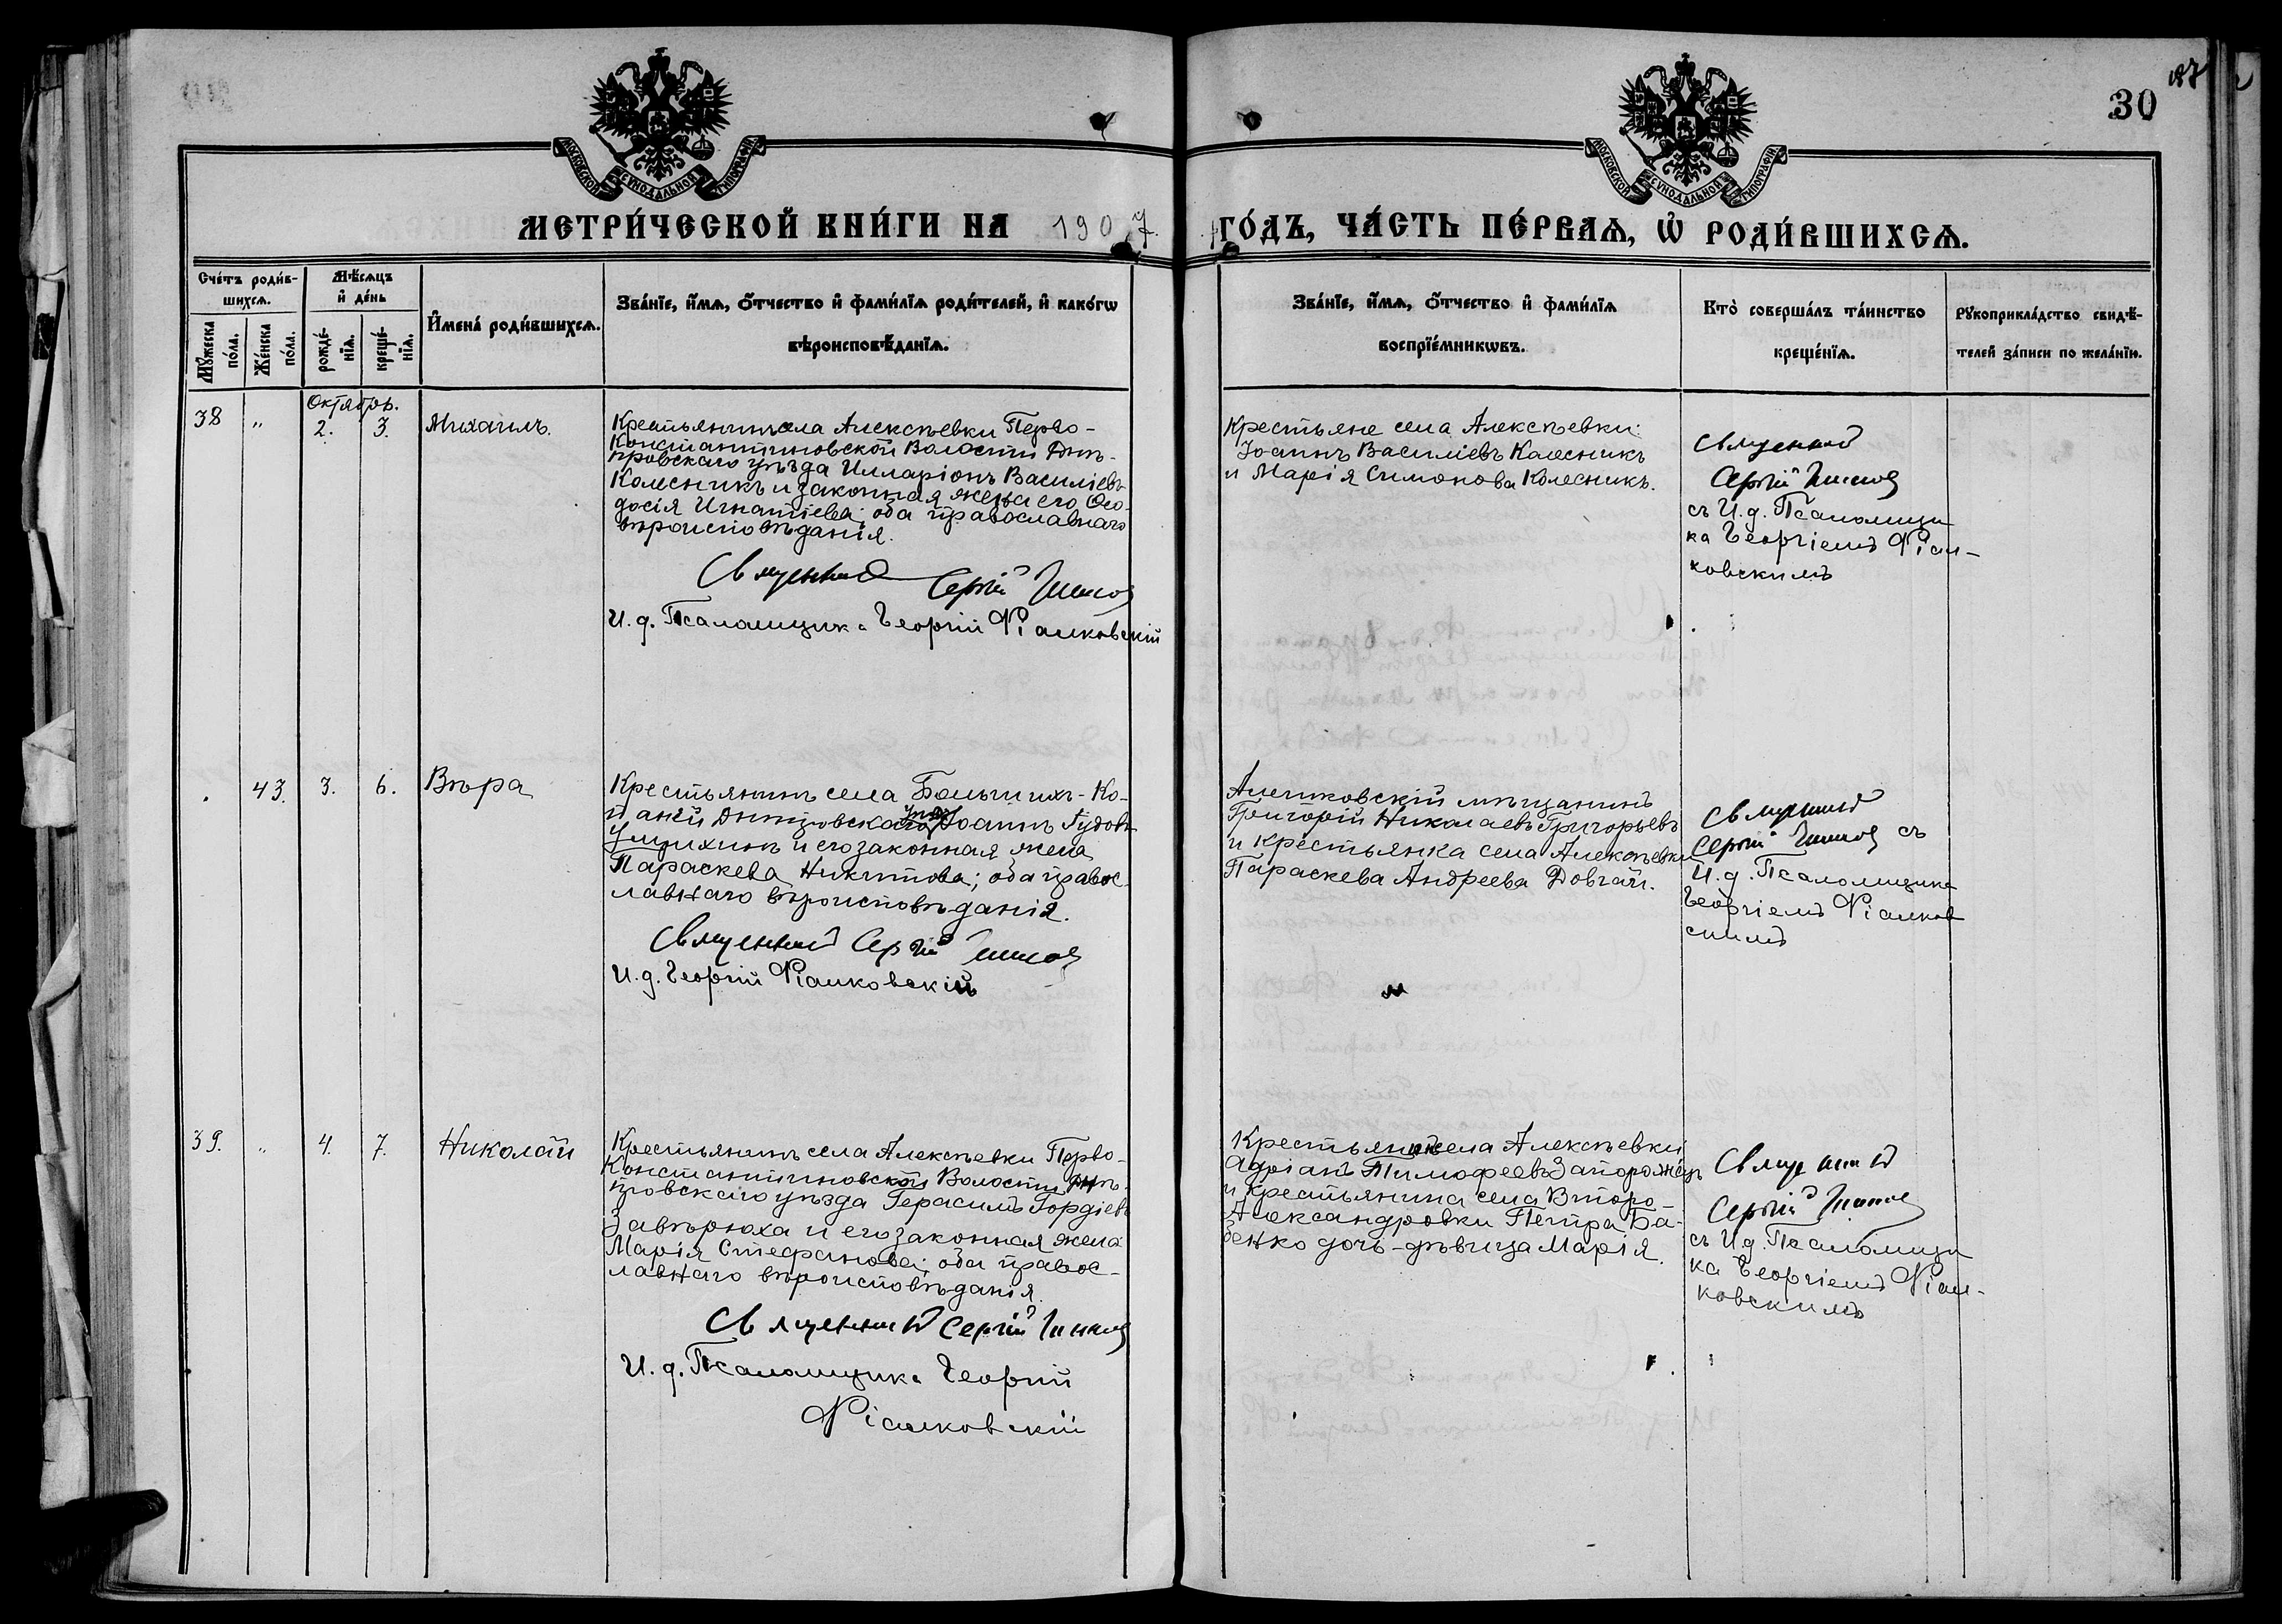 30
187
МОСКОВСКОЙ СУНОДАЛЬНОЙ ТИПОГРАФІИ
МОСКОВСКОЙ СУНОДАЛЬНОЙ ТИПОГРАФІИ
МЕТРИ́ЧЕСКОЙ КНИ́ГИ НА 1907 ГО́ДЪ, ЧА́СТЬ ПЕ́РВАѦ, Ѡ РОДИ́ВШИХСѦ.
Сче́тъ роди́в-
шихсѧ.
Мꙋ́жеска по́ла.
Же́нска по́ла.
Мѣ́сѧцъ
и де́нь
рожде́-
нїѧ.
креще́-
нїѧ.
Имена́ роди́вшихсѧ.
Зва́нїе, и́мѧ, ѻ́тчество и фами́лїѧ роди́телей, и како́гѡ
вѣроисповѣ́данїѧ.
Зва́нїе, и́мѧ, ѻ́тчество и фами́лїѧ
воспрїе́мникѡвъ.
Кто̀ соверша́лъ та́инство
креще́нїѧ.
Рꙋкоприкла́дство свидѣ́-
телей за́писи по жела́нїю.
Октябрь.
38 „ 2. 3. Михаилъ.
Крестьянинъ села Алексѣевки Перво-
Константиновской Волости Днѣ-
провскаго уѣзда Илларіонъ Василіевъ
Колесникъ и законная жена его Ѳео-
досія Игнатіева; оба православнаго
вѣроисповѣданія.
Священникъ Сергій
И. д. Псаломщика Георгій Фіалковскій
Крестьяне села Алексѣевки:
Іоаннъ Василіевъ Калесникъ
и Марія Симонова Колесникъ.
Священникъ
Сергій
съ И. д. Псаломщи
ка Георгіемъ Фіал-
ковскимъ
43. 3. 6. Вѣра
Крестьянинъ села Большихъ-Ко-
паней Днѣпровскаго уѣзда Іоаннъ
и его законная жена
Параскева Никитова; оба правос-
лавнаго вѣроисповѣданія.
Священникъ Сергій
И. д. Георгій Фіалковскій
Алешковскій мѣщанинъ
Григорій Николаевъ Григорьевъ
и крестьянка села Алексѣевки
Параскева Андреева Довгай.
Священникъ
Сергій съ
И. д. Псаломщика
Георгіемъ Фіалков
скимъ
39. „ 4. 7. Николай
Крестьянинъ села Алексѣевки Перво-
Константиновской Волости Днѣ-
провскаго уѣзда Герасимъ Гордіевъ
Завѣрюха и его законная жена
Марія Стефанова; оба правос-
лавнаго вѣроисповѣданія.
Священникъ Сергій
И. д. Псаломщика Георгій
Фіалковскій
Крестьянинъ села Алексѣевки
Адріанъ Тимофеевъ Запорожецъ
и крестьянина села Второ-
Александровки Петра Ба-
бенко дочь-дѣвица Марія.
Священникъ
Сергій
съ И. д. Псаломщи
ка Георгіемъ Фіал-
ковскимъ